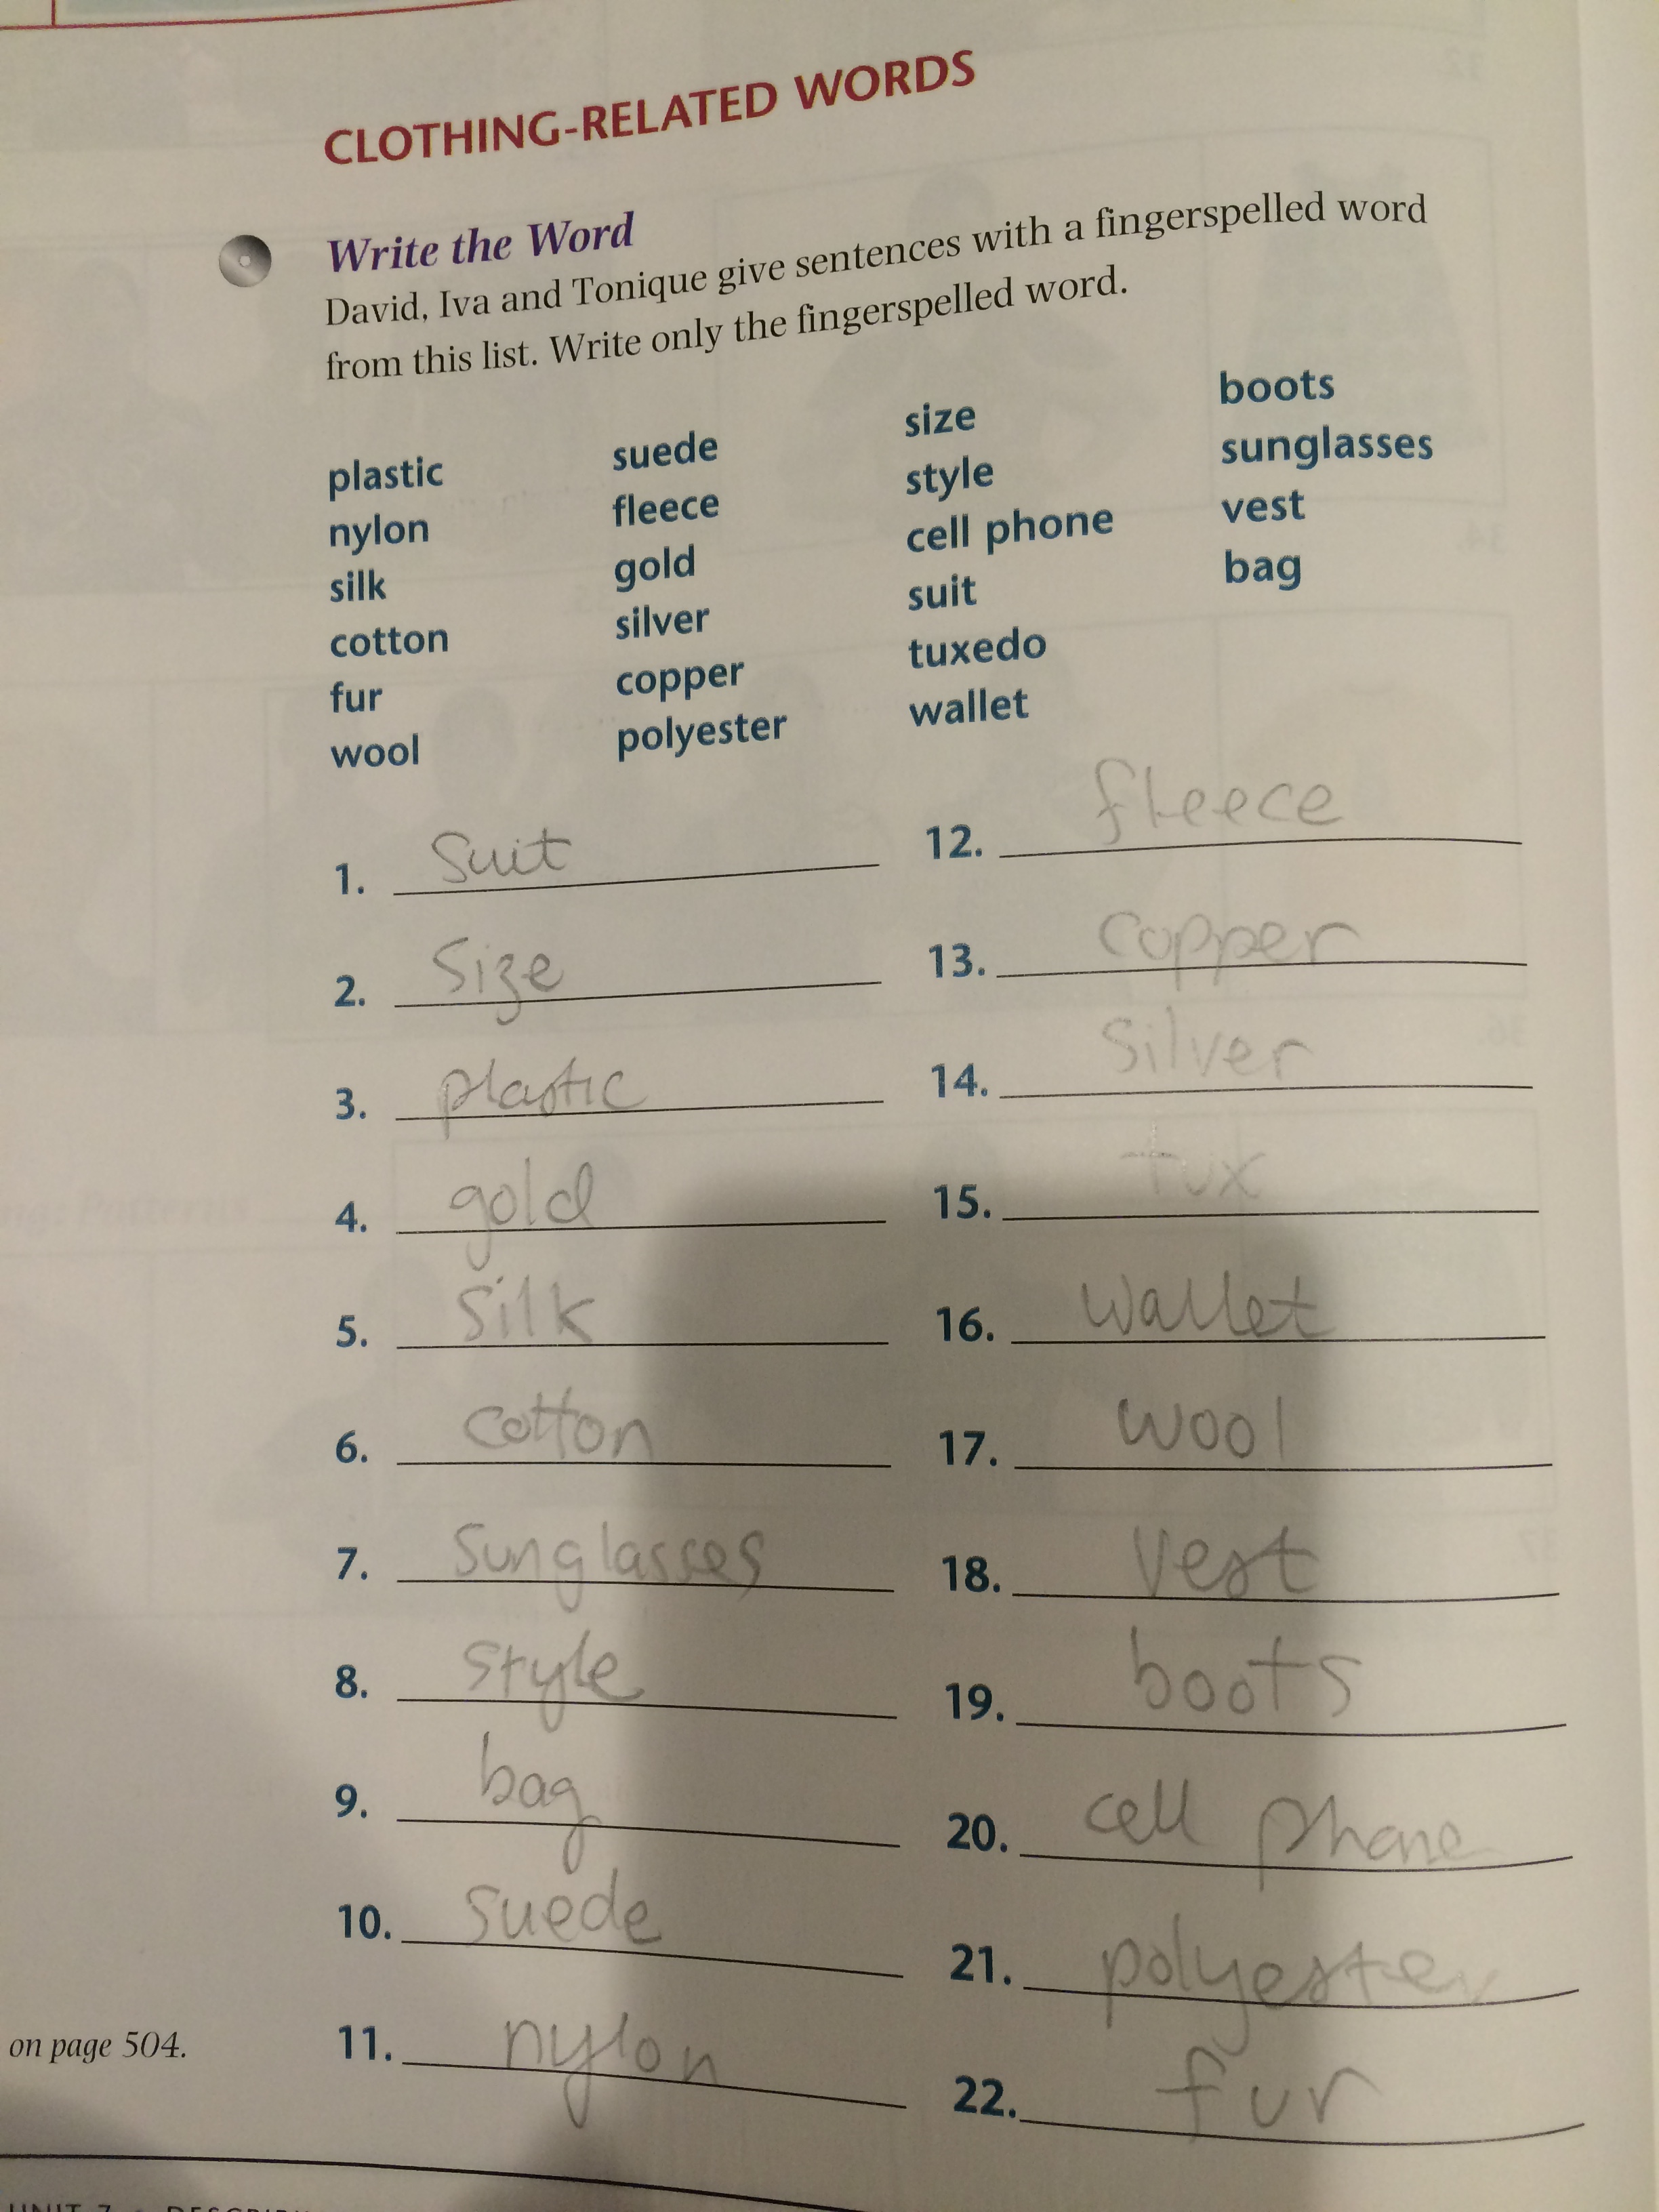 CLOTHING-RELATED WORDS
Write the Word
David, Iva and Tonique give sentences with a fingerspelled word
from this list. Write only the fingerspelled word.
plastic
nylon
silk
cotton
fur
wool
suede
fleece
gold
silver
copper
polyester
size
style
cell phone
suit
tuxedo
wallet
boots
sunglasses
vest
bag
1. suit
2. size
3. plastic
4. gold
5. silk
6. cotton
7. sunglasses
8. style
9. bag
10. suede
11. nylon
12. fleece
13. copper
14. silver
15. tux
16. wallet
17. wool
18. vest
19. boots
20. cell phone
21. polyester
22. fur
on page 504.
UNIT 7